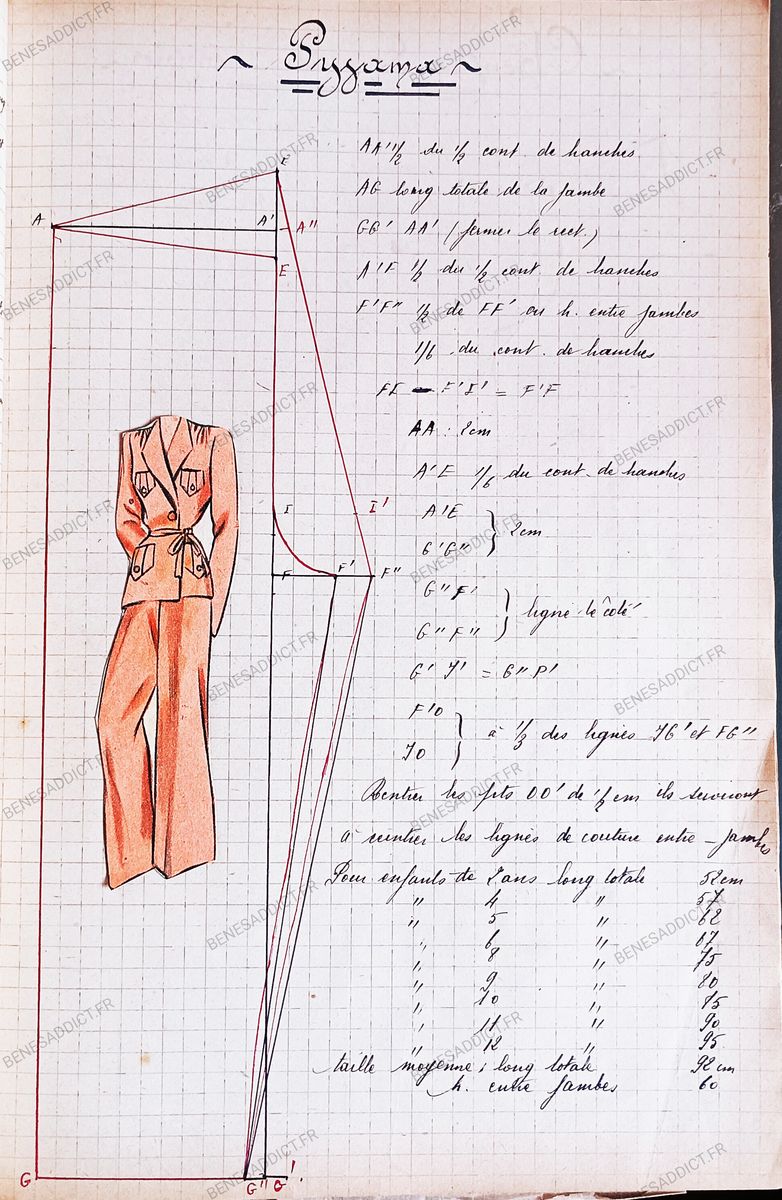 ~ Pyjama ~
AA' 1/2 du 1/2 cont. de hanches
AG long totale de la jambe
GG' AA' (fermer le rect.)
A'F 1/2 du 1/2 cont de hanches
F'F" 1/2 de FF' ou h. entre jambes
1/6 du cont. de hanches
FI - F'I' = F'F
AA : 2cm
A'E 1/6 du cont. de hanches
A'E
G'G" } 2cm
G" F'
G" F" } ligne de côté
G' J' = G" P'
F'O
JO } à 1/3 des lignes JG' et FG"
Rentrer les pts OO' de 1/2 cm ils serviront
à cintrer les lignes de couture entre-jambes
Pour enfants de 2 ans long totale 52cm
" 4 " 57
" 5 " 62
" 6 " 67
" 8 " 75
" 9 " 80
" 10 " 85
" 11 " 90
" 12 " 95
taille moyenne ; long totale 92 cm
h. entre jambes 60
E
A A' A"
E
I I'
F F' F"
G G" G'
BENESADDICT.FR